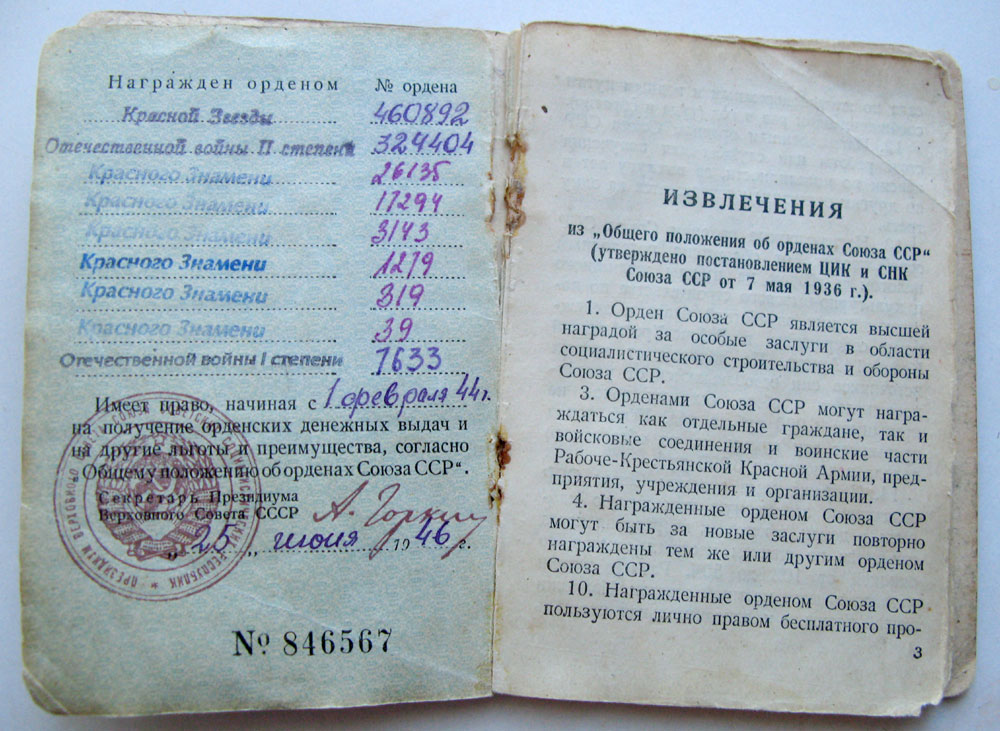 Награжден орденом № ордена
Красной Звезды 460892
Отечественной войны II степени 324404
Красного Знамени 26135
Красного Знамени 17294
Красного Знамени 3143
Красного Знамени 1279
Красного Знамени 319
Красного Знамени 39
Отечественной войны I степени 7633
Имеет право, начиная с 1 февраля 44 г.
на получение орденских денежных выдач и
на другие льготы и преимущества, согласно
„Общему положению об орденах Союза ССР“.
Секретарь Президиума
Верховного Совета СССР А. Горкин
„25„ июня 1946 г.
№ 846567
ИЗВЛЕЧЕНИЯ
из „Общего положения об орденах Союза ССР“
(утверждено постановлением ЦИК и СНК
Союза ССР от 7 мая 1936 г.).
1. Орден Союза ССР является высшей
наградой за особые заслуги в области
социалистического строительства и обороны
Союза ССР.
3. Орденами Союза ССР могут награ-
ждаться как отдельные граждане, так и
войсковые соединения и воинские части
Рабоче-Крестьянской Красной Армии, пред-
приятия, учреждения и организации.
4. Награжденные орденом Союза ССР
могут быть за новые заслуги повторно
награждены тем же или другим орденом
Союза ССР.
10. Награжденные орденом Союза ССР
пользуются лично правом бесплатного про-
3